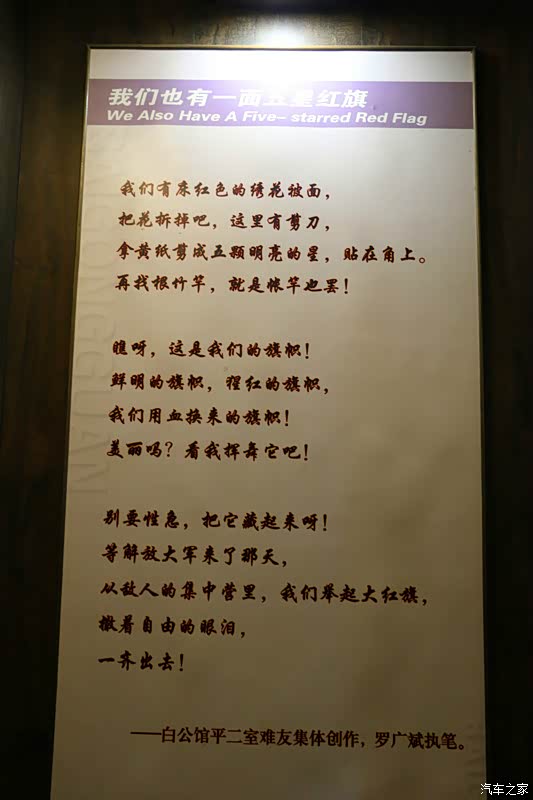 我们也有一面五星红旗
We Also Have A Five- starred Red Flag
我们有床红色的绣花被面，
把花拆掉吧，这里有剪刀，
拿黄纸剪成五颗明亮的星，贴在角上。
再找根竹竿，就是帐竿也罢！
瞧呀，这是我们的旗帜！
鲜明的旗帜，猩红的旗帜，
我们用血换来的旗帜！
美丽吗？看我挥舞它吧！
别要性急，把它藏起来呀！
等解放大军来了那天，
从敌人的集中营里，我们举起大红旗，
撒着自由的眼泪，
一齐出去！
——白公馆平二室难友集体创作，罗广斌执笔。
汽车之家